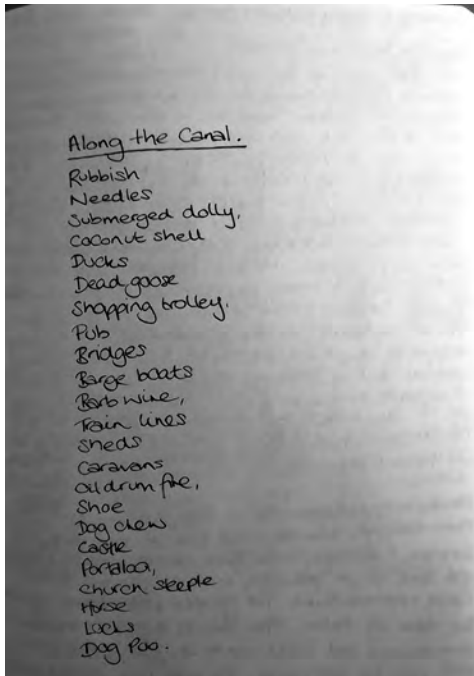 Along the Canal.
Rubbish
Needles
Submerged dolly,
Coconut shell
Ducks
Dead goose
Shopping trolley.
Pub
Bridges
Barge boats
Barb wire,
Train lines
Sheds
Caravans
Oil drum fire,
Shoe
Dog chew
Castle
Portaloo,
Church steeple
Horse
Locks
Dog Poo.